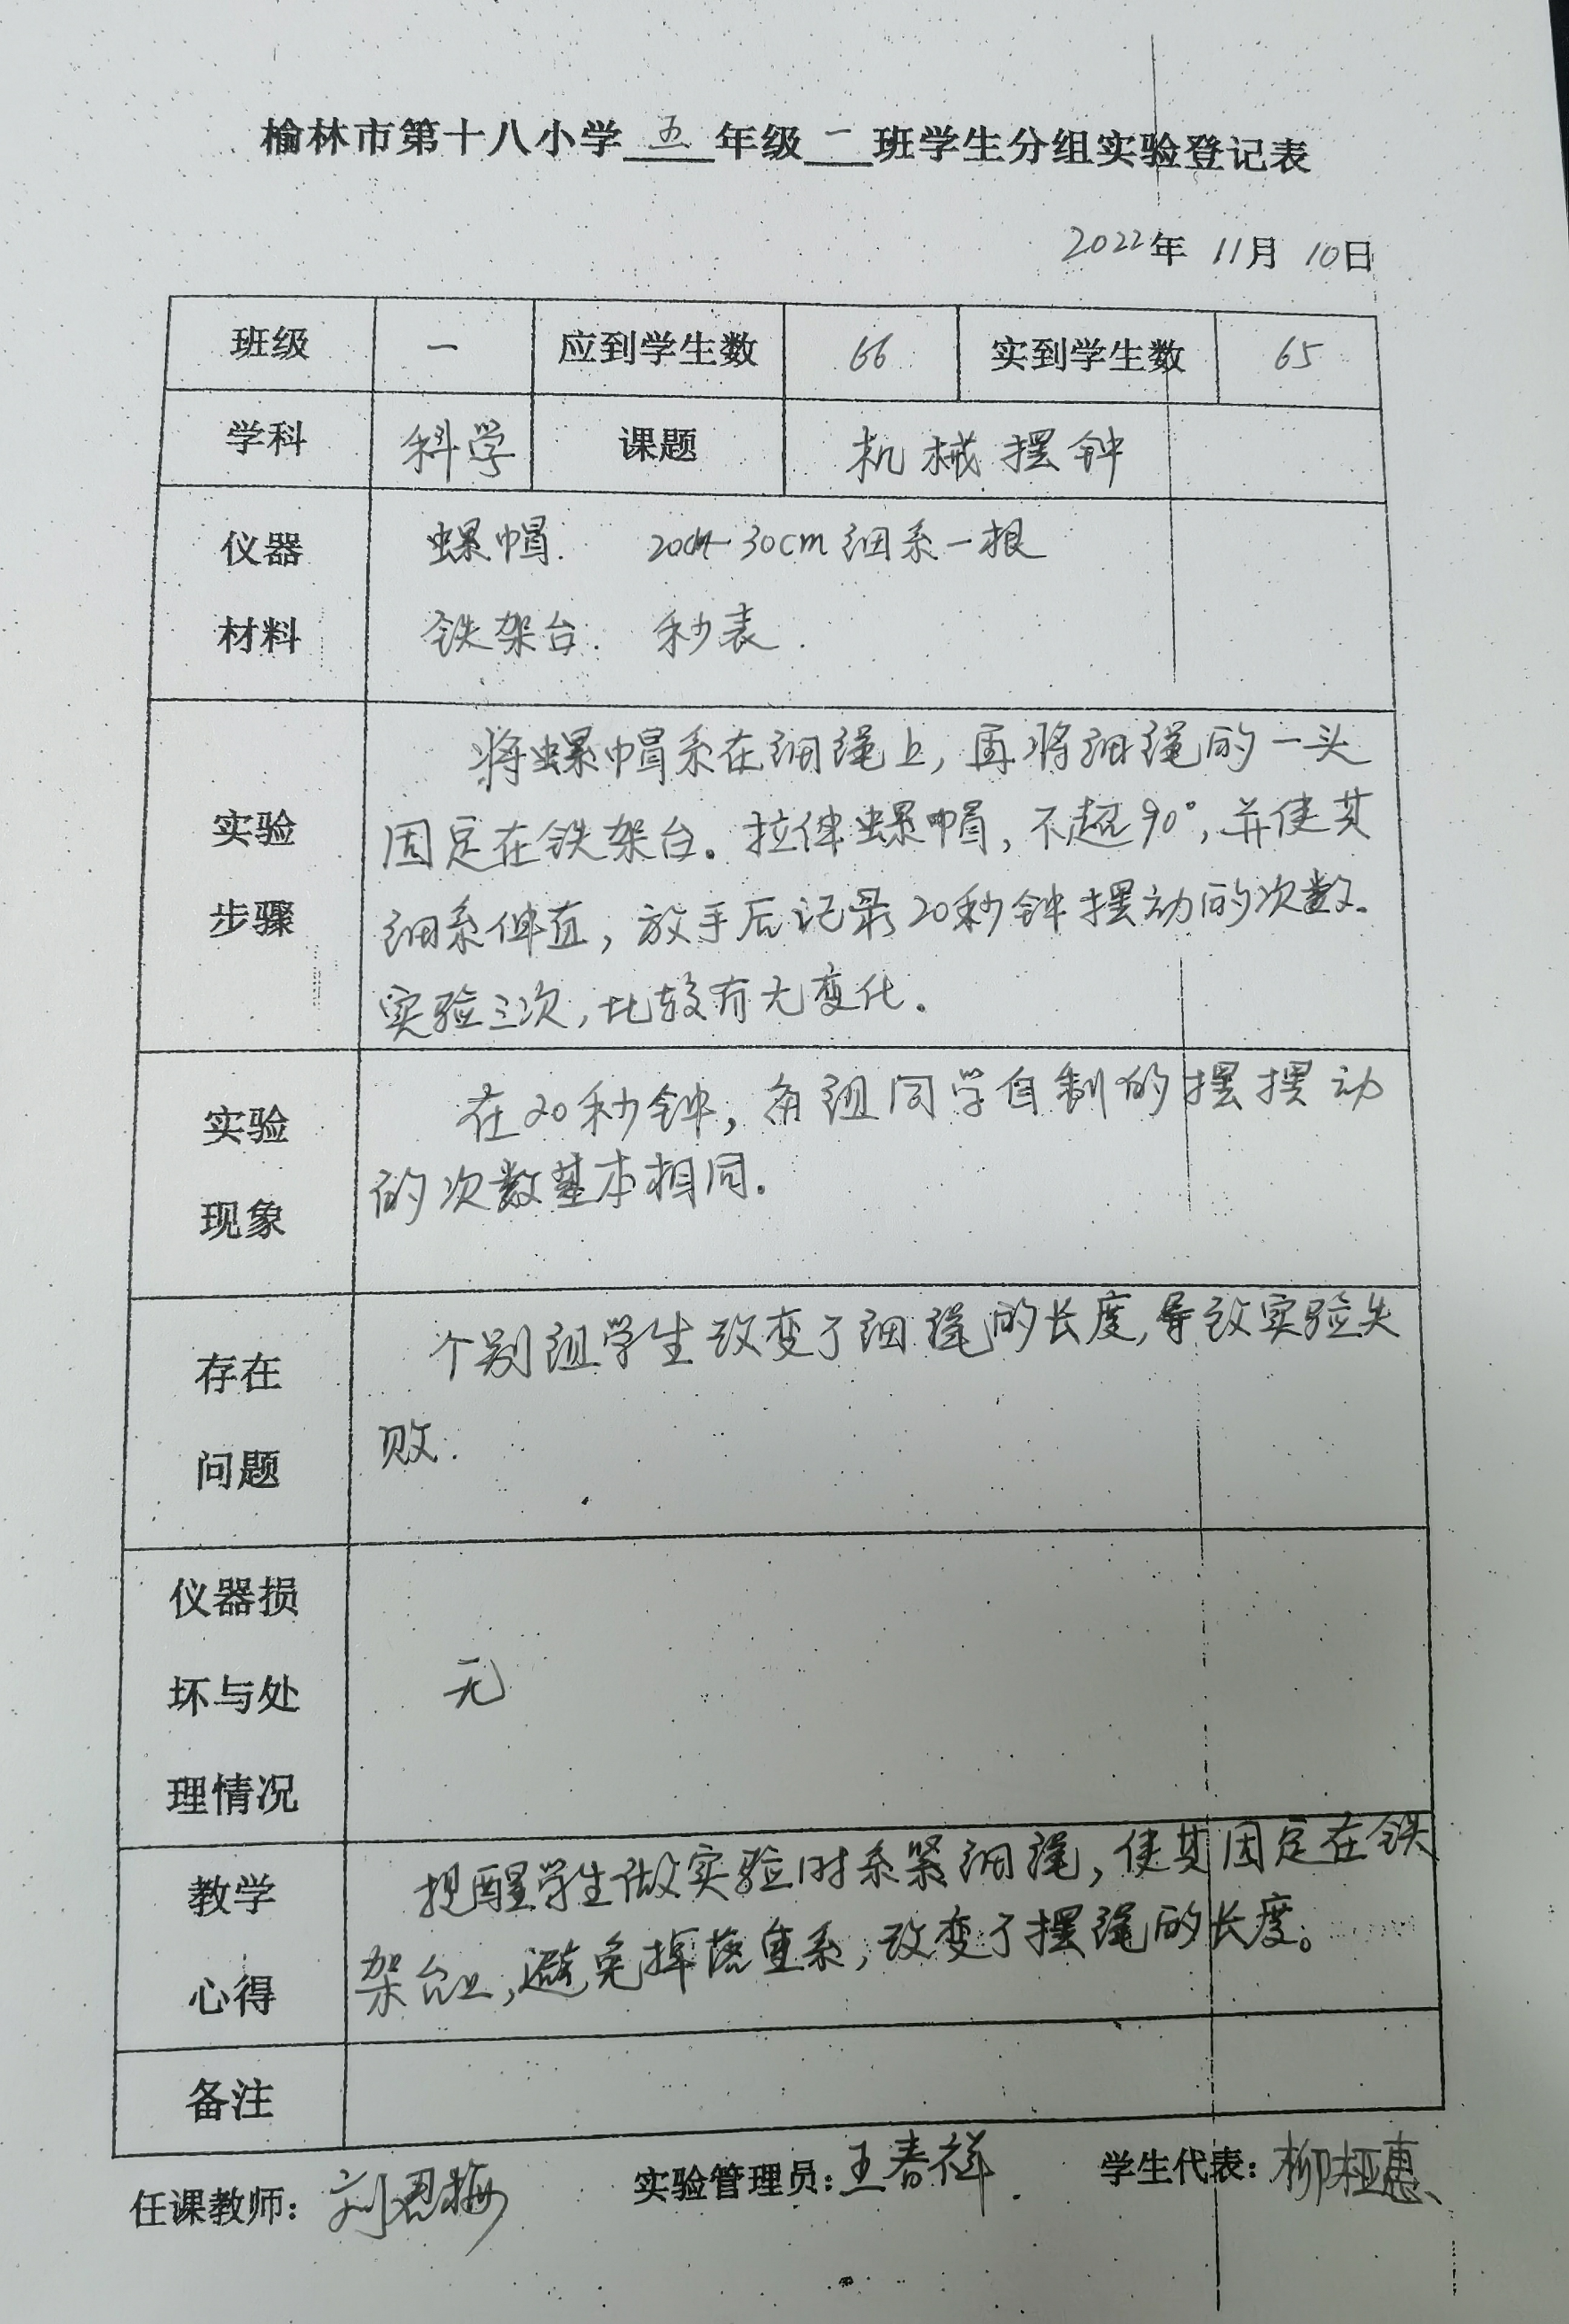 榆林市第十八小学 五 年级 一 班学生分组实验登记表
2022年 11月 10日
班级 一 应到学生数 66 实到学生数 65
学科 科学 课题 机械摆钟
仪器 螺帽. 20cm-30cm细系一根
材料 铁架台. 秒表.
将螺帽系在细绳上,再将细绳的一头
实验 固定在铁架台。拉伸螺帽,不超90°,并使其
步骤 细系伸直,放手后记录20秒钟摆动的次数.
实验三次,比较有无变化.
实验 在20秒钟,各组同学自制的摆摆动
现象 的次数基本相同.
存在 个别组学生改变了细绳的长度,导致实验失
问题 败.
仪器损
坏与处 无
理情况
教学 提醒学生做实验时系紧细绳,使其固定在铁
心得 架台上,避免掉落重系,改变了摆绳的长度。
备注
任课教师: 刘 实验管理员:王春祥. 学生代表:柳桠惠